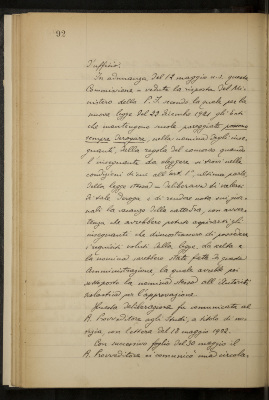 92
d'ufficio.
In adunanza del 12 maggio u.s. questa
Commissione veduta la risposta del Mi-
nistero della P. I. secondo la quale per la
nuova legge del 22 dicembre 1921 gli Enti
che mantengono scuole pareggiate possono
sempre derogare, nella nomina degli inse-
gnanti, dalla regola del concorso quando
l'insegnante da eleggere si trovi nelle
condizioni di cui all'art. 1°, ultima parte,
della legge stessa deliberava di valersi
di tale deroga e di rendere noto sui gior-
nali la vacanza della cattedra, con avver-
tenza che avrebbero potuto aspirarvi gli
insegnanti che dimostravano di possedere
i requisiti voluti dalla legge,
la nomina sarebbe stata fatta da questa
Amministrazione la quale avrebbe poi
sottoposto la nomina stessa all'Autorità
scolastica per l'approvazione.
Questa deliberazione fu comunicata al
R. Provveditore agli Studi, a titolo di
con lettera del 18 maggio 1922.
Con successivo foglio del 30 maggio il
R. Provveditore ci comunicò una circola-